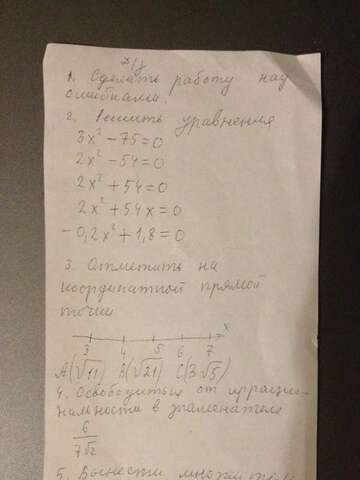 Д/з
1. Сделать работу над
ошибками.
2. Решить уравнения
3x² − 75 = 0
2x² − 54 = 0
2x² + 54 = 0
2x² + 54x = 0
− 0,2x² + 1,8 = 0
3. Отметить на
координатной прямой
точки
3 4 5 6 7 x
A(√11) B(√21) C(3√5)
4. Освободиться от иррацио-
нальности в знаменателе
6
7√2
5. Вынести